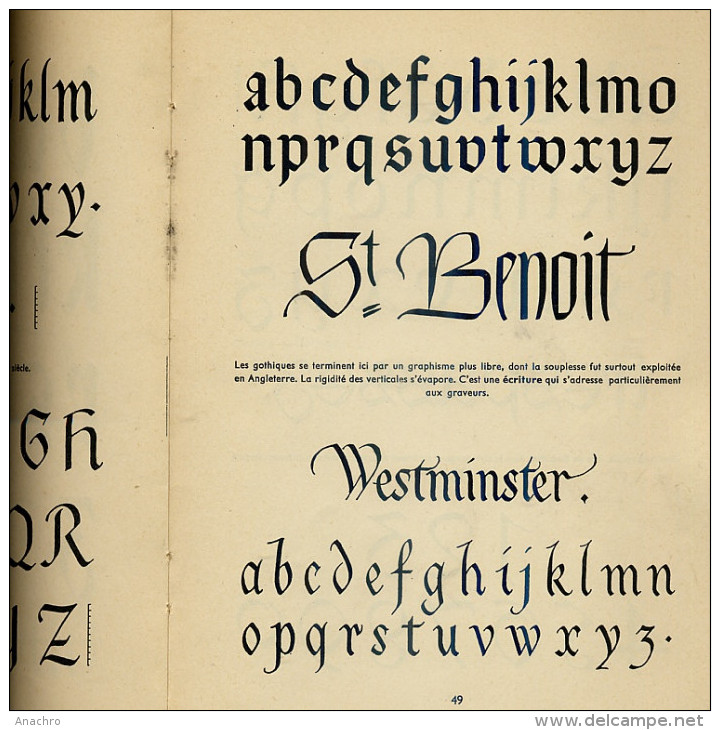 klm
xy.
siècle.
Gh
QR
Z
abcdefghijklmo
nprqsuvtwxyz
St Benoit
Les gothiques se terminent ici par un graphisme plus libre, dont la souplesse fut surtout exploitée
en Angleterre. La rigidité des verticales s'évapore. C'est une écriture qui s'adresse particulièrement
aux graveurs.
Westminster.
abcdefghijklmn
opqrstuvwxyz.
49
Anachro
delcampe.net